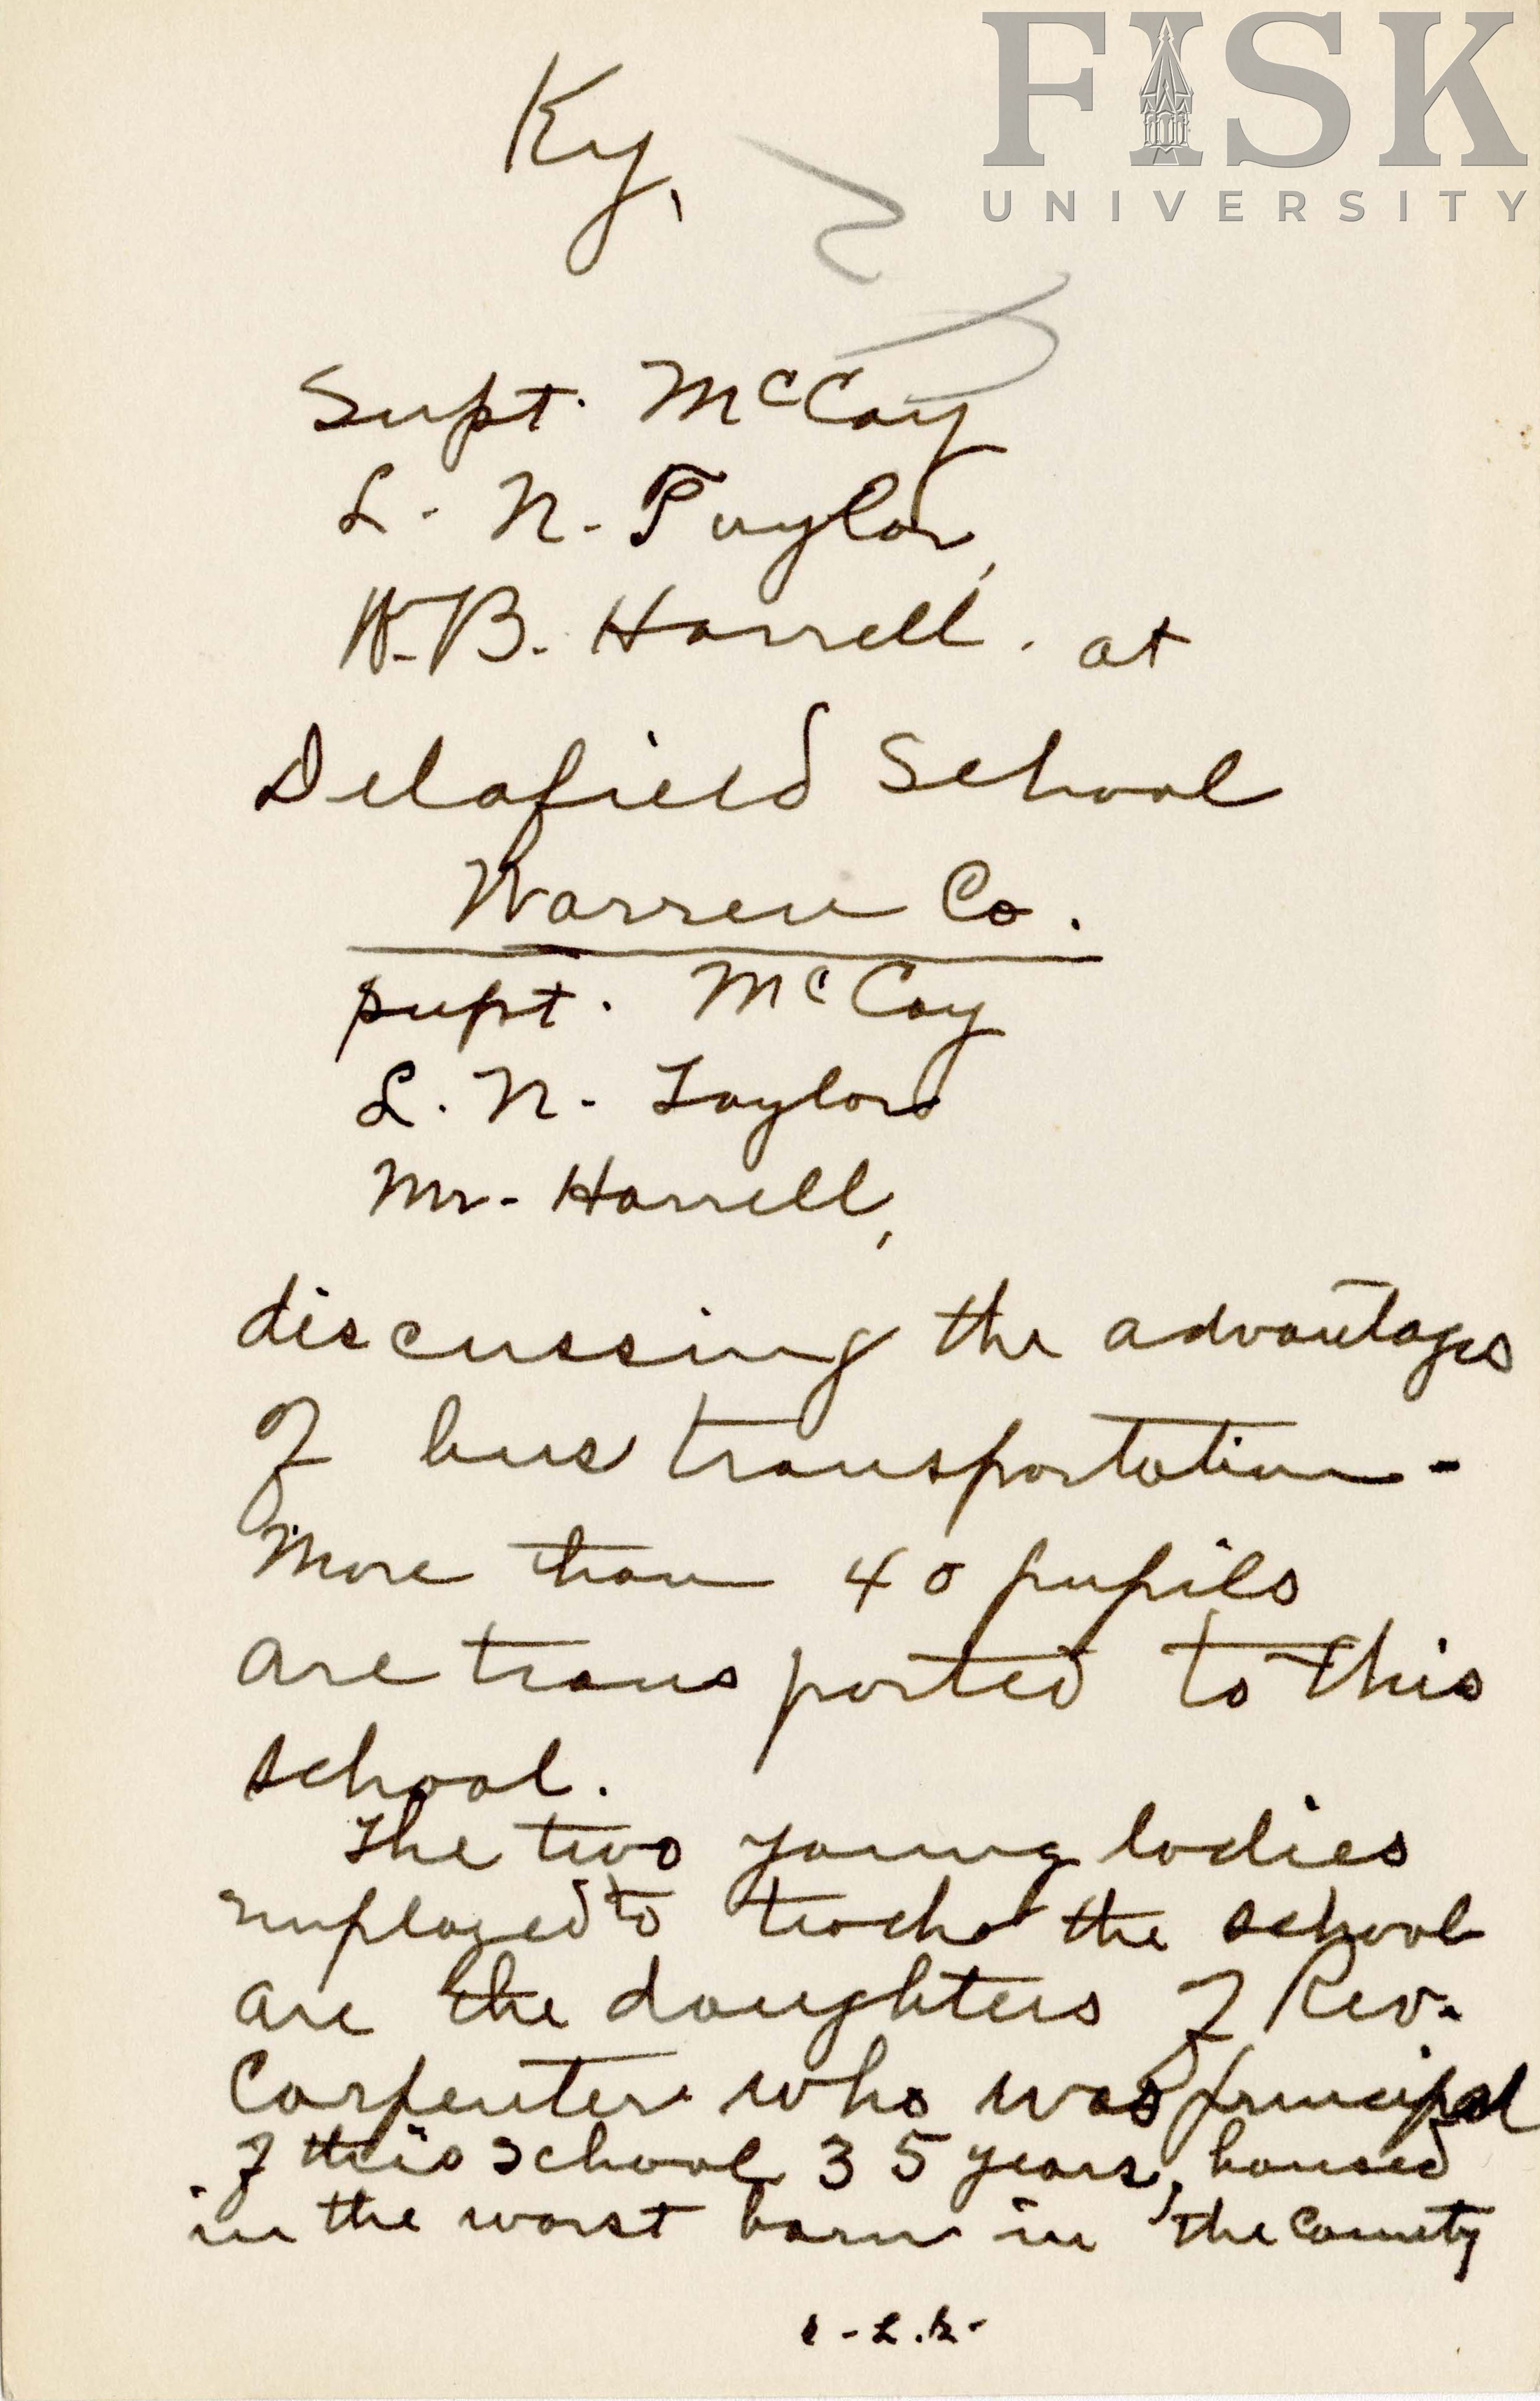 FISK
UNIVERSITY
Ky.
Supt. McCoy
L. N. Taylor,
W.B. Harrell. at
Delafield School
Warren Co.
Supt. McCoy
L. N. Taylor
Mr. Harrell,
discussing the advantages
of bus transportation -
More than 40 pupils
are transported to this
school.
The two young ladies
employed to teach the school
are the daughters of Rev.
Carpenter who was principal
of this school 35 years, housed
in the worst barn in the county